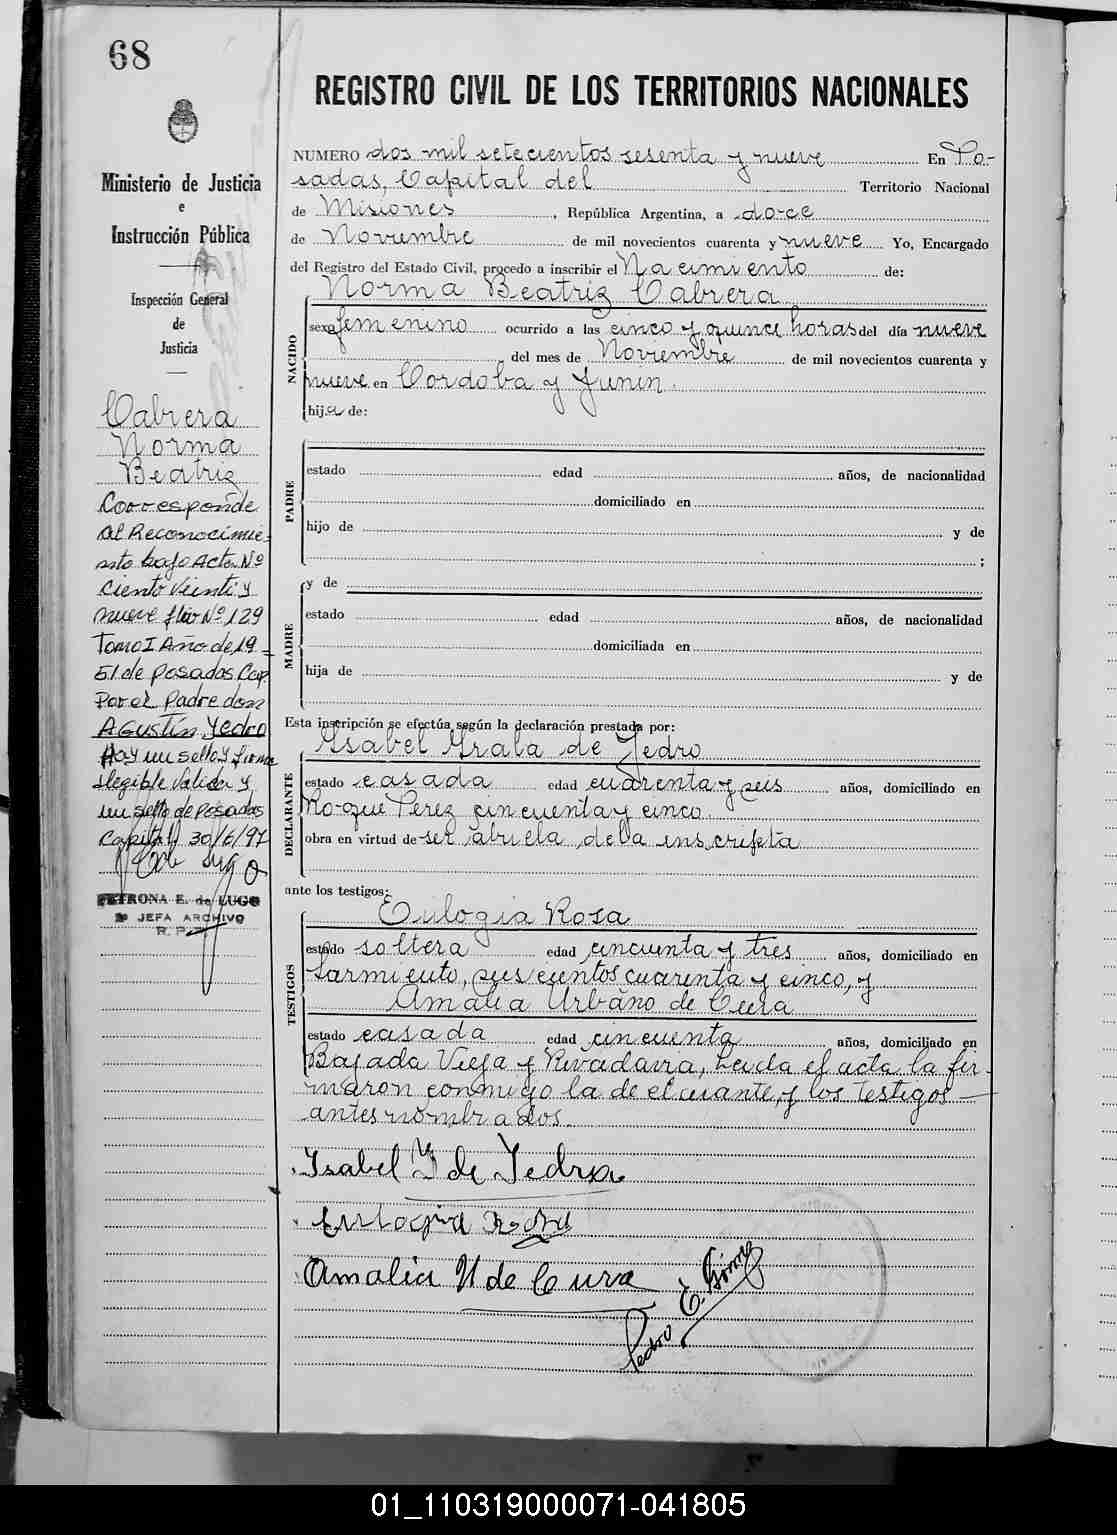 68
Ministerio de Justicia
e
Instrucción Pública
Inspección General
de
Justicia
Cabrera
Norma
Beatriz
Corresponde
al Reconocimie-
nto bajo Acta Nº
Ciento Veinti y
nueve flio Nº 129
Tomo I Año de 19
51 de Posadas Cap.
Por el Padre don
Agustín Yedro
Hay un sello y firma
ilegible Valida y
un sello de Posadas
Capital 30/6/97
PETRONA E. de LUGO
JEFA ARCHIVO
R. P.
REGISTRO CIVIL DE LOS TERRITORIOS NACIONALES
NUMERO dos mil setecientos sesenta y nueve En Po-
sadas, Capital del Territorio Nacional
de Misiones, República Argentina, a doce
de Noviembre de mil novecientos cuarenta y nueve Yo, Encargado
del Registro del Estado Civil, procedo a inscribir el Nacimiento de:
NACIDO
Norma Beatriz Cabrera
sexo femenino ocurrido a las cinco y quince horas del día nueve
del mes de Noviembre de mil novecientos cuarenta y
nueve en Cordoba y Junin.
hija de:
PADRE
estado edad años, de nacionalidad
domiciliado en
hijo de y de
;
MADRE
y de
estado edad años, de nacionalidad
domiciliada en
hija de y de
Esta inscripción se efectúa según la declaración prestada por:
DECLARANTE
Ysabel Yrala de Yedro
estado casada edad cuarenta y seis años, domiciliado en
Roque Perez cincuenta y cinco.
obra en virtud de ser abuela de la inscripta
ante los testigos:
TESTIGOS
Eulogia Rosa
estado soltera edad cincuenta y tres años, domiciliado en
Sarmiento, seiscientos cuarenta y cinco, y
Amalia Urbano de Cura
estado casada edad cincuenta años, domiciliado en
Bajada Vieja y Rivadavia, Leida el acta la fir-
maron conmigo la declarante, y los testigos
antes nombrados.
Ysabel Y de Yedro
Eulogia Rosa
Amalia U de Cura
Pedro E.
01_110319000071-041805